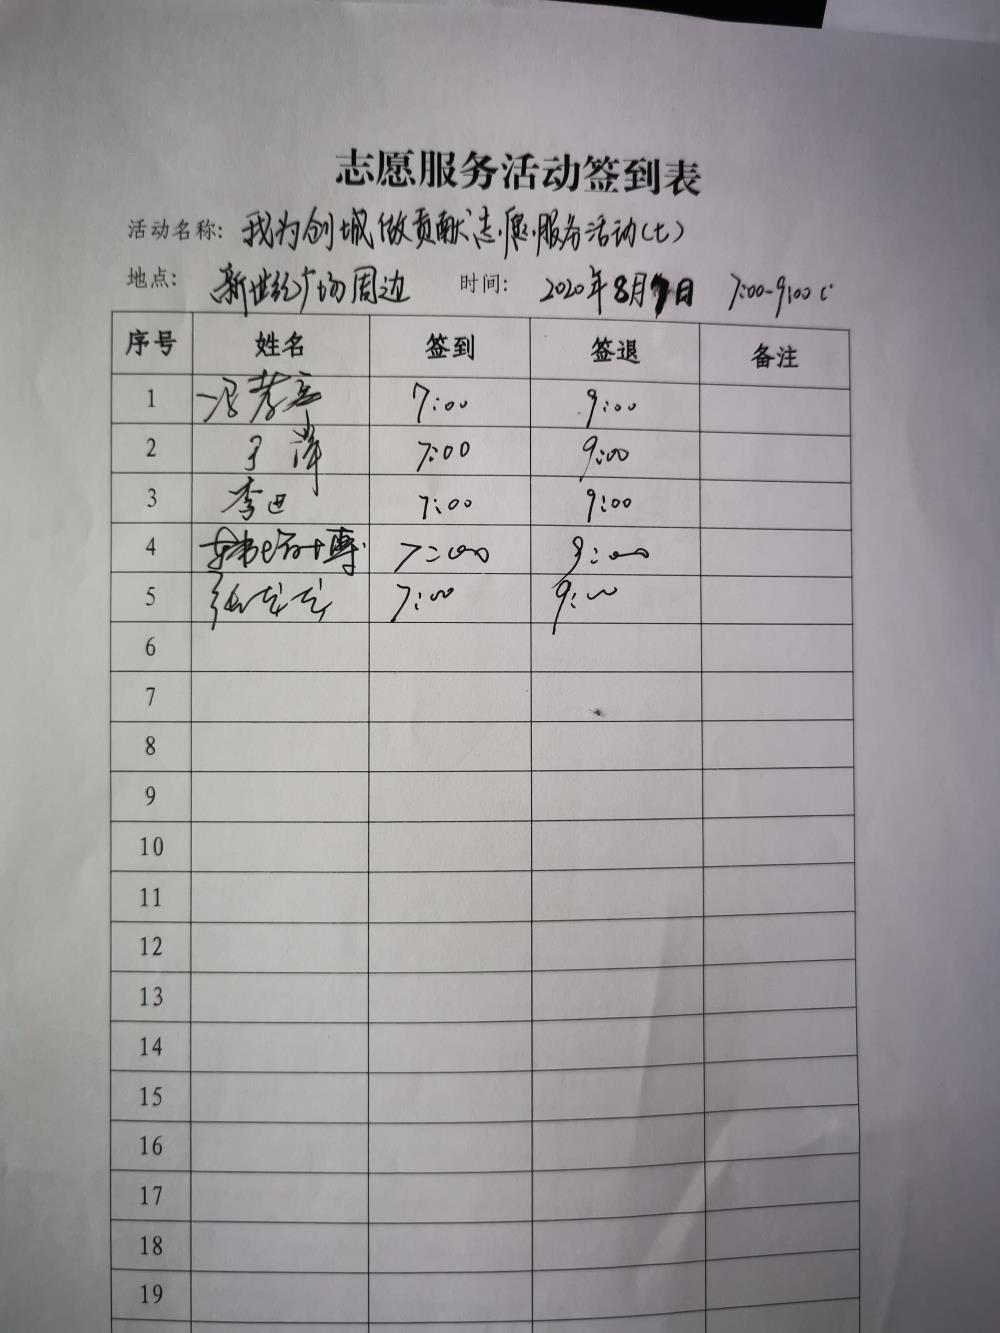 志愿服务活动签到表
活动名称: 我为创城做贡献志愿服务活动(七)
地点: 新世纪广场周边 时间: 2020年8月7日 7:00-9:00
序号 姓名 签到 签退 备注
1 冯孝亮 7:00 9:00
2 于洋 7:00 9:00
3 李迅 7:00 9:00
4 7:00 9:00
5 张龙龙 7:00 9:00
6
7
8
9
10
11
12
13
14
15
16
17
18
19